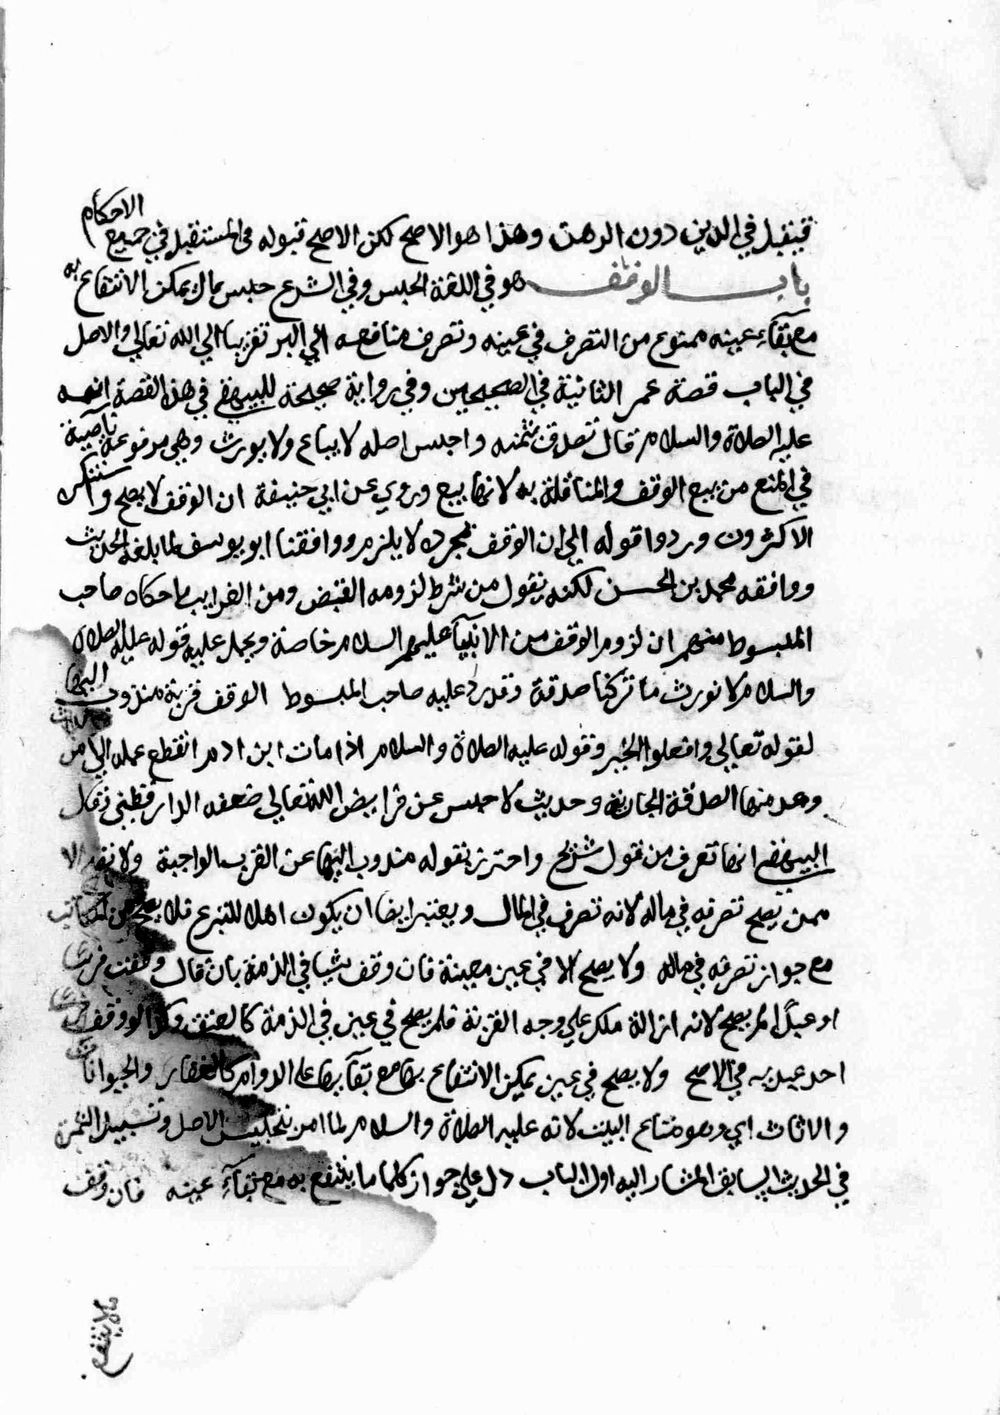 فيقبل في الدين دون الرهن وهذا هو الاصح لكن الاصح قبوله في المستقبل في جميع الاحكام
باب الوقف هو في اللغة الحبس وفي الشرع حبس مال يمكن الانتفاع به
مع بقاء عينه ممنوع من التصرف في عينه وتصرف منافعه الي البر تقربا الي الله تعالي والاصل
في الباب قصة عمر الثانية في الصحيحين وفي رواية صحيحة للبيهقي في هذا القصة انه
عليه الصلاة والسلام قال تصدق بثمنه واحبس اصله لا يباع ولا يورث وهي مرفوعة ناصية
في المنع من بيع الوقف والمناقلة به لانها بيع وروي عن ابي حنيفة ان الوقف لا يصح واستنكره
الاكثرون وردوا قوله الي ان الوقف بمجرده لا يلزم ووافقنا ابو يوسف لما بلغه الحديث
ووافقه محمد بن الحسن لكنه يقول من شرط لزومه القبض ومن الغرايب ما حكاه صاحب
المبسوط منهم ان لزوم الوقف من الانبيآ عليهم السلام خاصة وحمل عليه قوله عليه الصلاة
والسلام لا نورث ما تركنا صدقة وقد رد عليه صاحب المبسوط الوقف قربة مندوب اليها
لقوله تعالي وافعلوا الخير وقوله عليه الصلاة والسلام اذا مات ابن ادم انقطع عمله الي من
وعد منها الصدقة الجارية وحديث لا حبس عن فرايض الله تعالي ضعفه الدارقطني وقال
البيهقي انما تعرف من قول شريح واحترز بقوله مندوب اليها عن القرب الواجبة ولا تقع الا
ممن يصح تصرفه في ماله لانه تصرف في المال ويعتبر ايضا ان يكون اهلا للتبرع فلا يصح من المكاتب
مع جواز تصرفه في ماله ولا يصح الا في عين معينة فان وقف شيا في الذمة بان قال وقفت فرسا
او عبدًا لم يصح لانه ازالة ملك علي وجه القربة فلم يصح في عين في الذمة كالعتق وكذا لو وقف
احد عبديه في الاصح ولا يصح في عين يمكن الانتفاع بها مع بقآيها علي الدوام كالعقار والحيوانات
والاثاث اي وهو متاع البيت لانه عليه الصلاة والسلام لما امر بتحبيس الاصل وتسبيل الثمرة
في الحديث السابق المشار اليه اول الباب دل علي جواز كلما ما ينتفع به مع بقآء عينه فان وقف